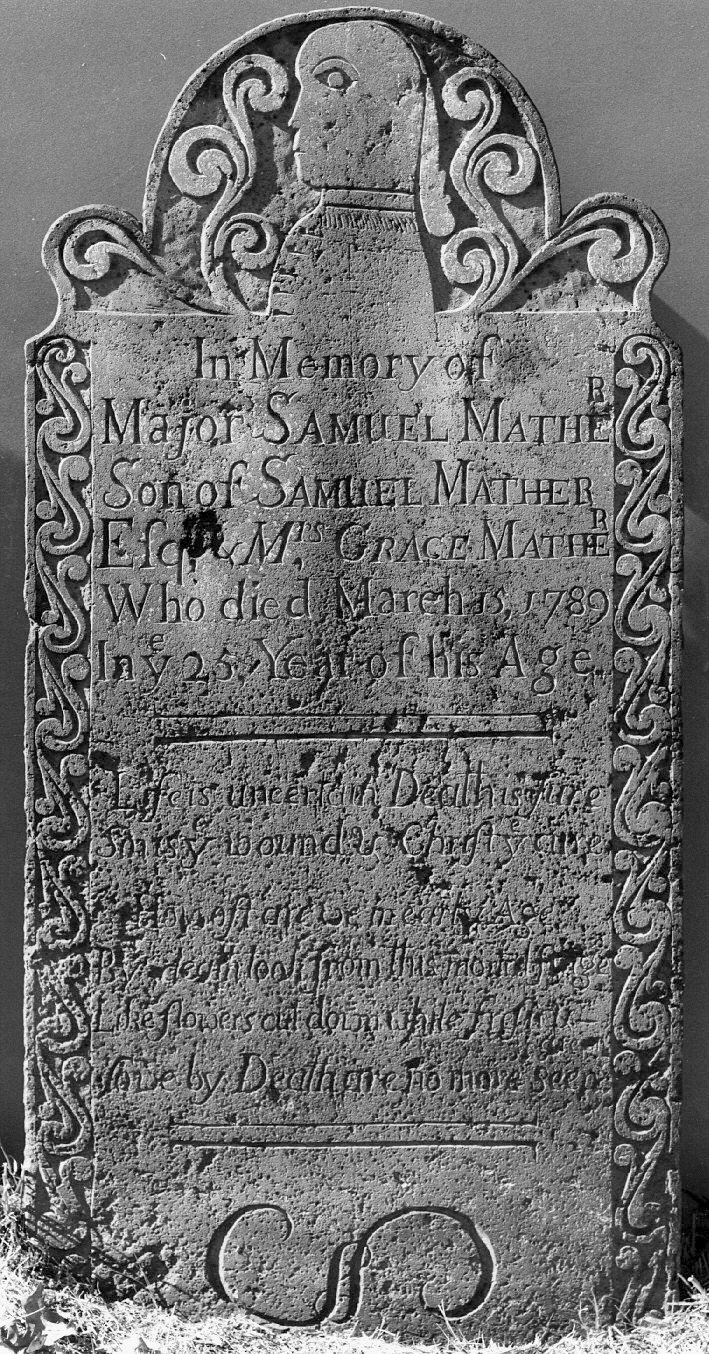 In Memory of
Major SAMUEL MATHER
Son of SAMUEL MATHER
Eſqr. & Mrs. GRACE MATHER
Who died March 15, 1789
In ye 25 Year of his Age.
Life is uncertain Death is ſure
Sin is ye wound & Chriſt ye cure
How oft are we in early Age
By death took from this mortal ſtage
Like flowers cut down while freſh
By Death are no more seen